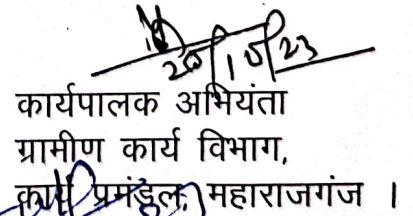 20/10/23
कार्यपालक अभियंता
ग्रामीण कार्य विभाग,
कार्य प्रमंडल, महाराजगंज ।